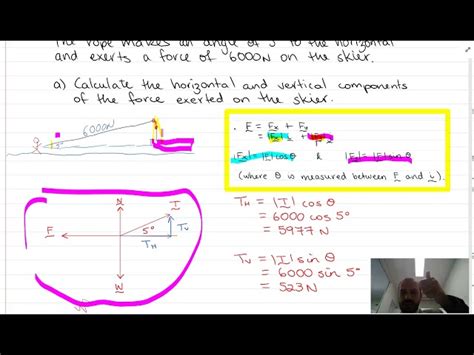 The rope makes an angle of 5° to the horizontal
and exerts a force of 6000N on the skier.
a) Calculate the horizontal and vertical components
of the force exerted on the skier.
6000N
5°
F = Fx + Fy
= |Fx| i +
|Fx| = |F| cos θ & |Fy| = |F| sin θ
(where θ is measured between F and i).
N
T
F
5°
Tv
TH
W
TH = |T| cos θ
= 6000 cos 5°
= 5977 N
Tv = |T| sin θ
= 6000 sin 5°
= 523 N